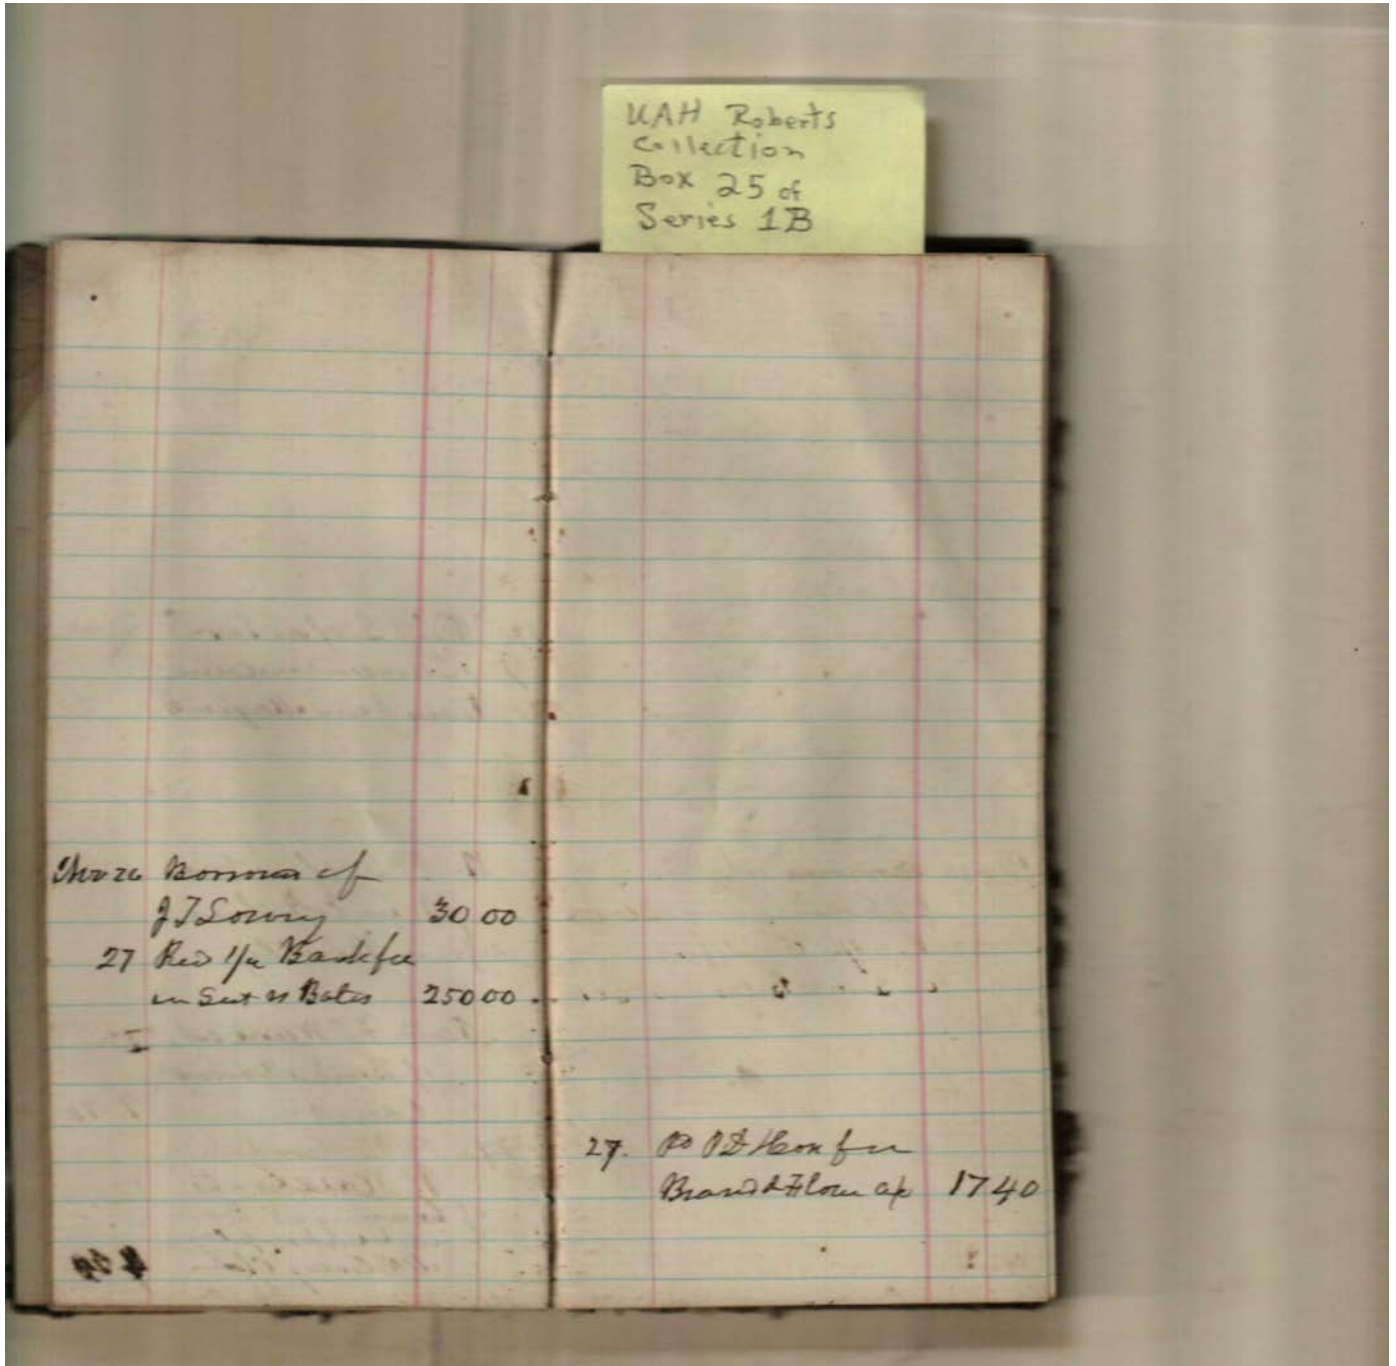 UAH Roberts
Collection
Box 25 of
Series 1B
Nov 26 Borrowed of
J T Lowry 30 00
27 Bank fee
in Suit vs Bates 250 00
27. Pd P D Hon for
Bran & Flour 17 40